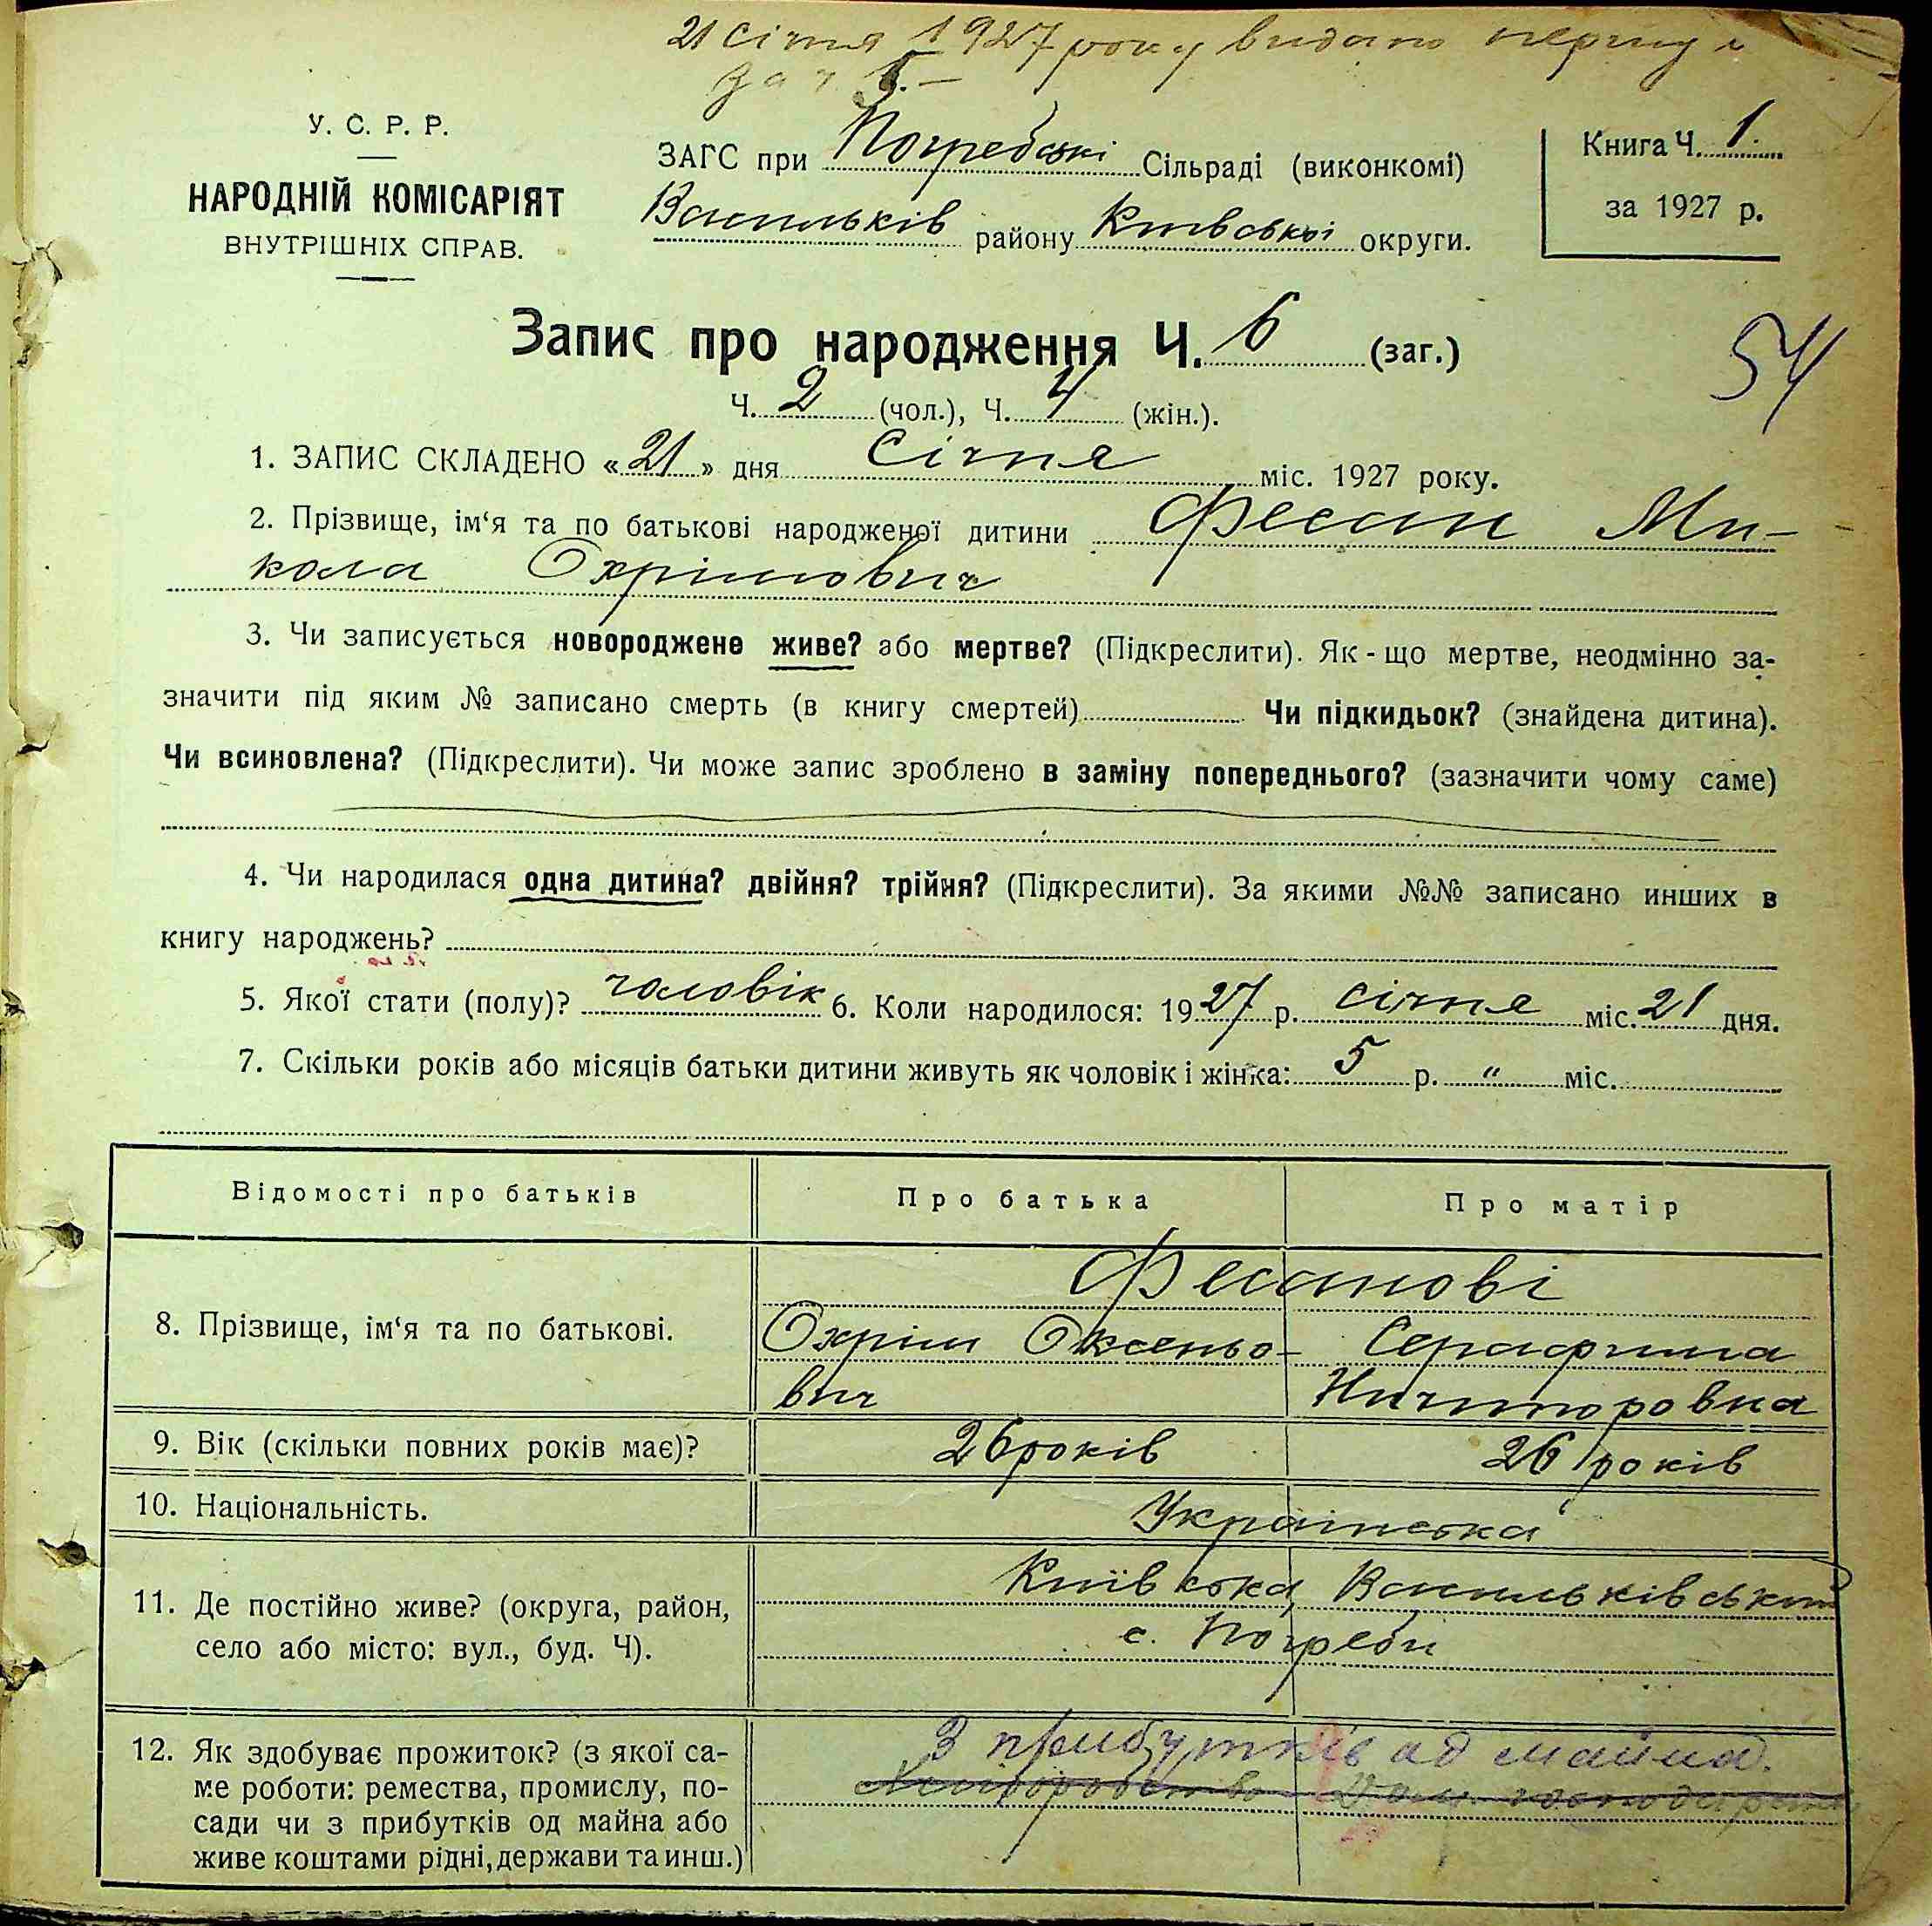 21 січня 1927 року видано першу
за ч. 5.—
У. С. Р. Р.
НАРОДНІЙ КОМІСАРІЯТ
ВНУТРІШНІХ СПРАВ.
ЗАГС при Погребські Сільраді (виконкомі)
Васильків району Київської округи.
Книга Ч. 1
за 1927 р.
Запис про народження Ч. 6 (заг.)
54
Ч. 2 (чол.), Ч. 4 (жін.).
1. ЗАПИС СКЛАДЕНО «21» дня Січня міс. 1927 року.
2. Прізвище, ім‘я та по батькові народженої дитини Фесан Ми-
кола Охрімович
3. Чи записується новороджене живе? або мертве? (Підкреслити). Як-що мертве, неодмінно за-
значити під яким № записано смерть (в книгу смертей) Чи підкидьок? (знайдена дитина).
Чи всиновлена? (Підкреслити). Чи може запис зроблено в заміну попереднього? (зазначити чому саме)
4. Чи народилася одна дитина? двійня? трійня? (Підкреслити). За якими №№ записано инших в
книгу народжень?
5. Якої стати (полу)? чоловік 6. Коли народилося: 1927 р. січня міс. 21 дня.
7. Скільки років або місяців батьки дитини живуть як чоловік і жінка: 5 р. " міс.
Відомості про батьків Про батька Про матір
Фесанові
8. Прізвище, ім‘я та по батькові. Охрім Оксеньо- Серафима
вич Ничипоровна
9. Вік (скільки повних років має)? 26 років 26 років
10. Національність. Українська
Київська, Васильківський
11. Де постійно живе? (округа, район,
село або місто: вул., буд. Ч). с. Погреби
12. Як здобуває прожиток? (з якої са- З прибутків од майна.
ме роботи: ремества, промислу, по- Хліборобство Дом. господарство
сади чи з прибутків од майна або
живе коштами рідні, держави та инш.)